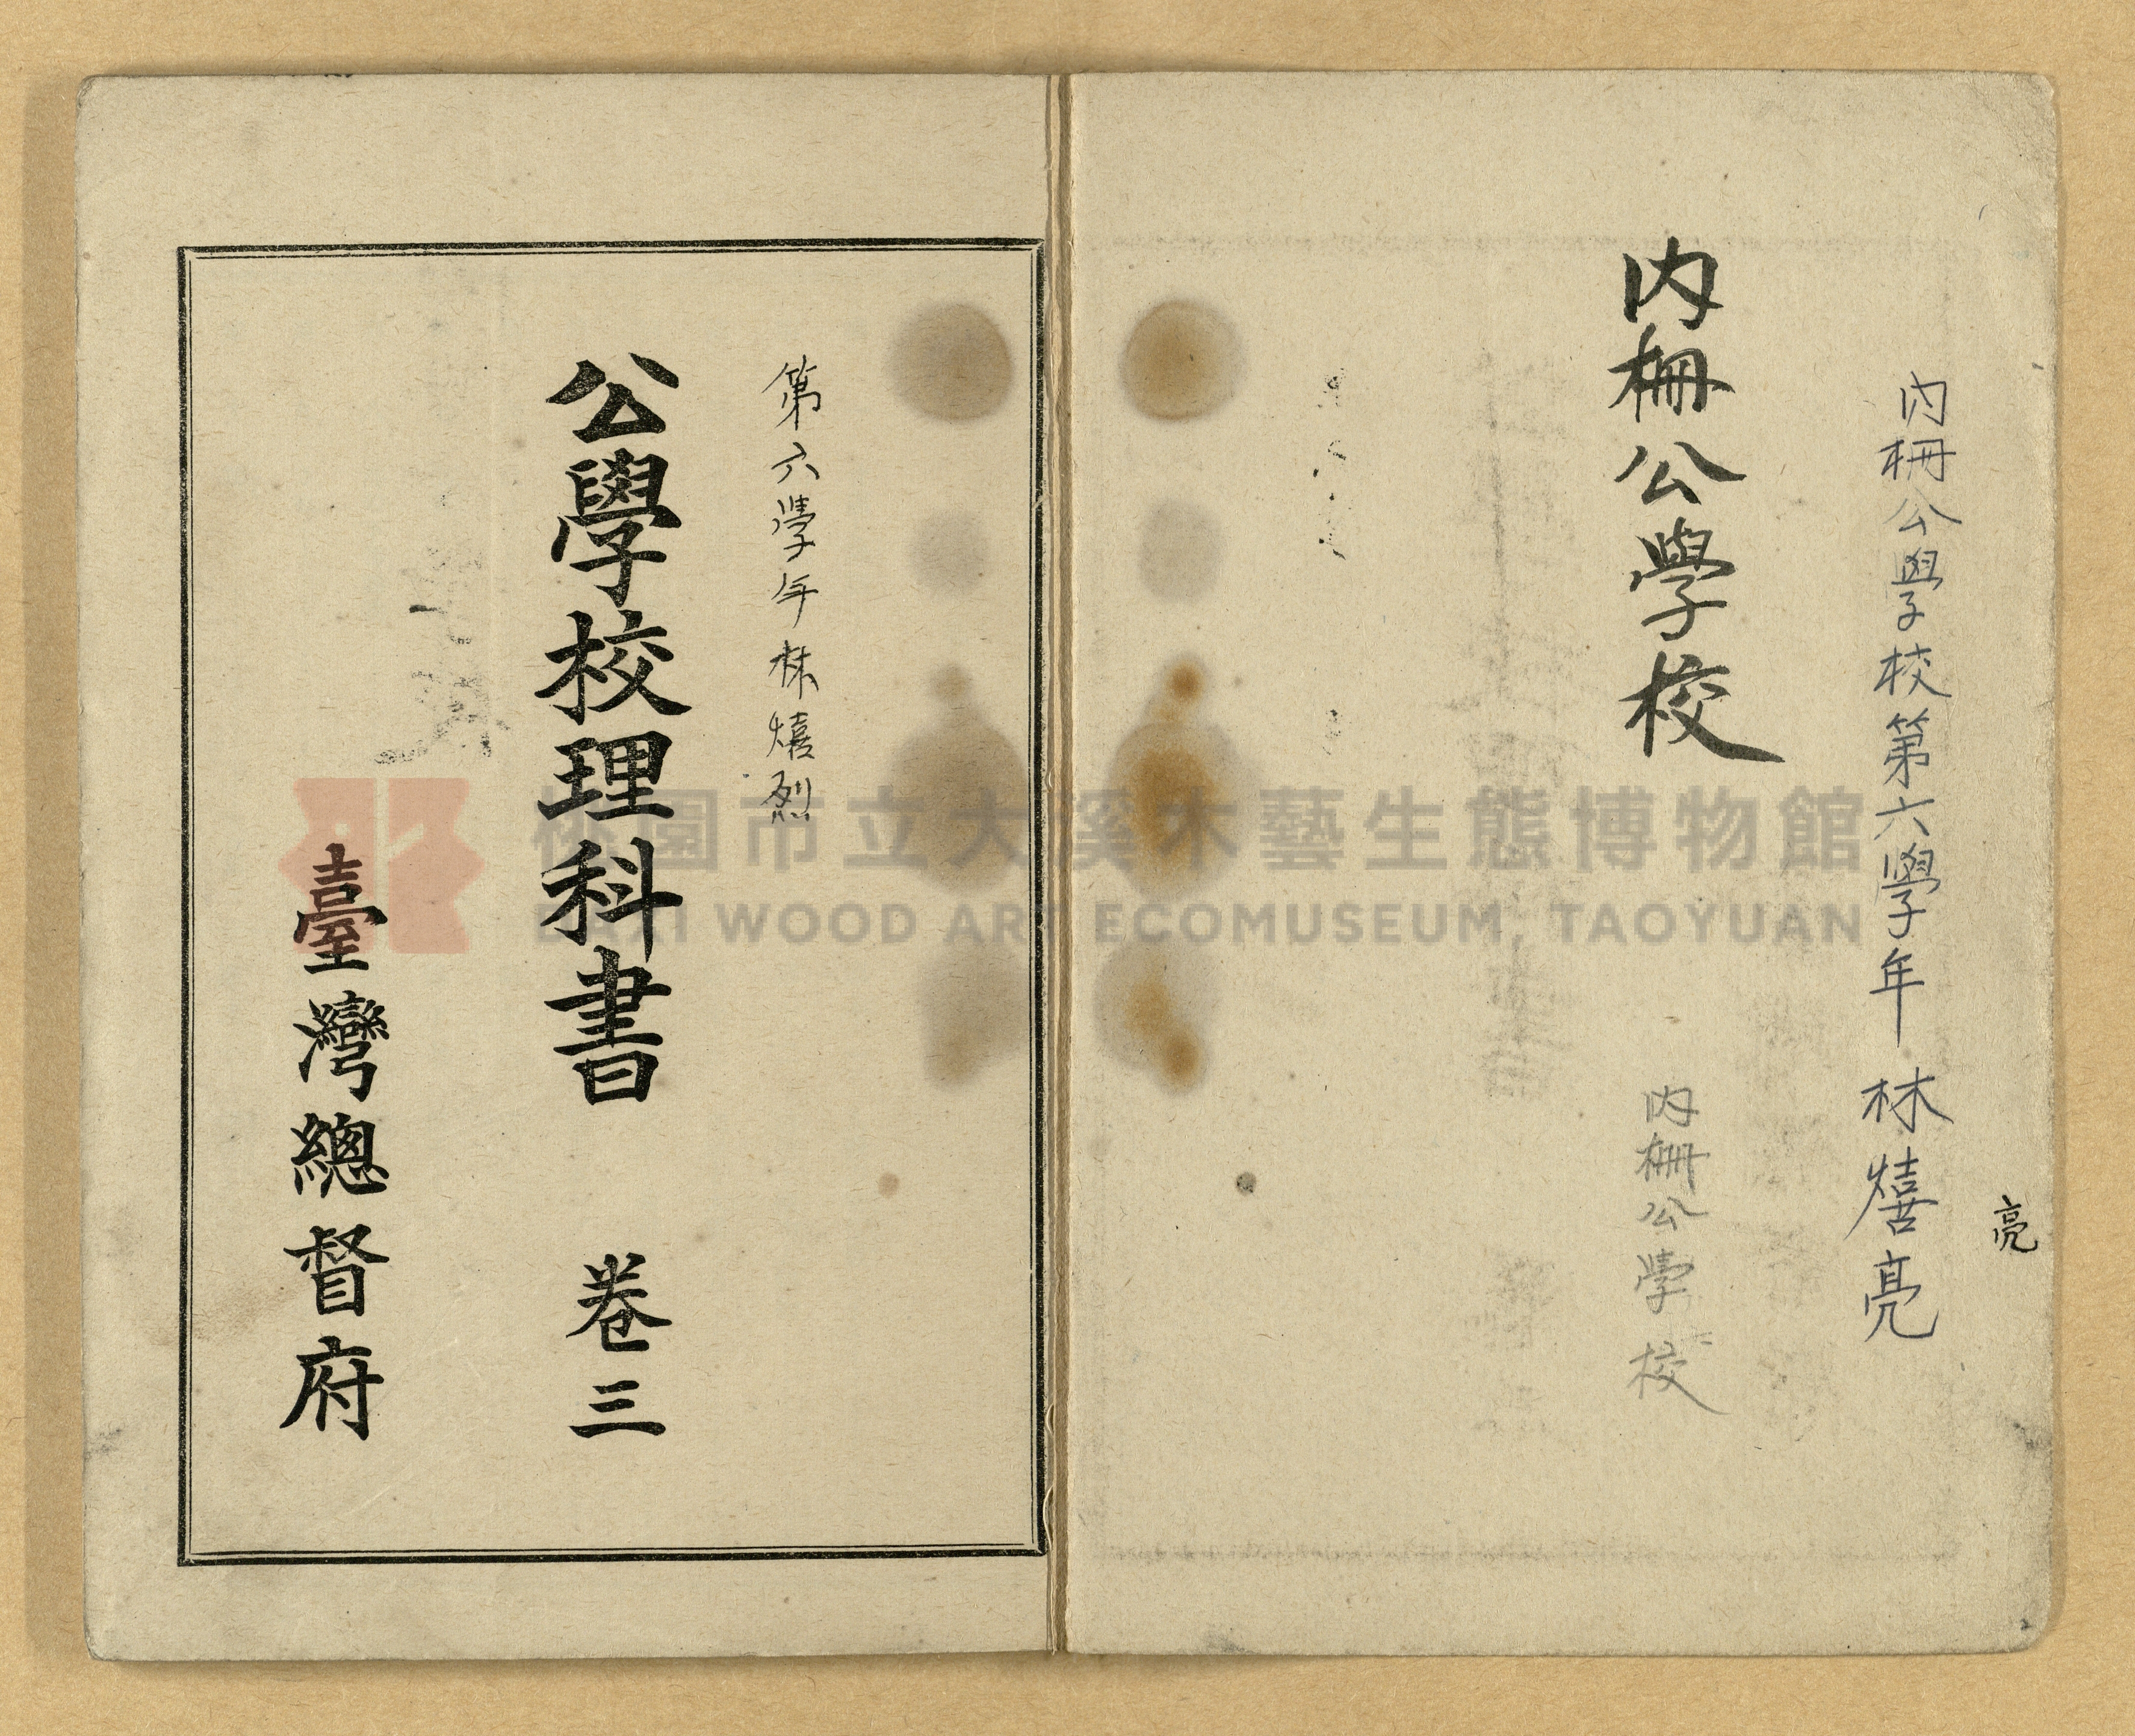 内柵公學校第六學年 林熺亮
亮
内柵公學校
内柵公學校
第六學年林熺烈
公學校理科書 卷三
臺灣總督府
桃園市立大溪木藝生態博物館
DAXI WOOD ART ECOMUSEUM, TAOYUAN